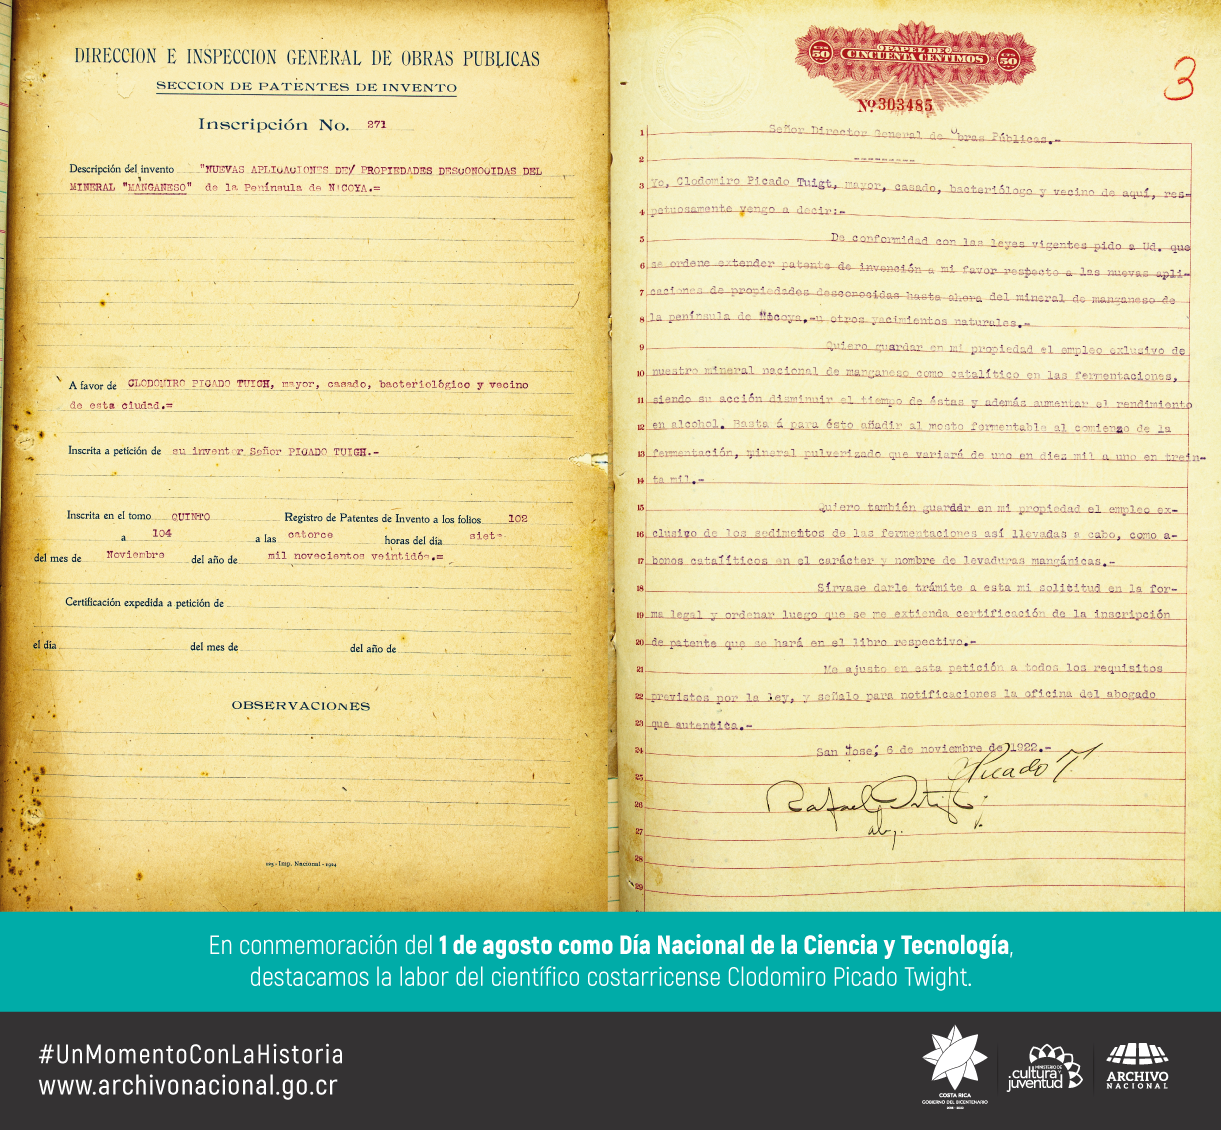 DIRECCION E INSPECCION GENERAL DE OBRAS PUBLICAS
SECCION DE PATENTES DE INVENTO
Inscripción No. 271
Descripción del invento "NUEVAS APLICACIONES DE/ PROPIEDADES DESCONOCIDAS DEL
MINERAL "MANGANESO" de la Península de NICOYA.=
A favor de CLODOMIRO PICADO TUIGH, mayor, casado, bacteriológico y vecino
de esta ciudad.=
Inscrita a petición de su inventor Señor PICADO TUIGH.-
Inscrita en el tomo QUINTO Registro de Patentes de Invento a los folios 102
a 104 a las catorce horas del día siete
del mes de Noviembre del año de mil novecientos veintidós.=
Certificación expedida a petición de
el día del mes de del año de
OBSERVACIONES
Imp. Nacional - 1914
CTS 50 PAPEL DE CINCUENTA CENTIMOS CTS 50
Nº 303485
3
1 Señor Director General de Obras Públicas.-
2 ---------
3 Yo, Clodomiro Picado Tuigt, mayor, casado, bacteriólogo y vecino de aquí, res-
4 petuosamente vengo a decir:-
5 De conformidad con las leyes vigentes pido a Ud. que
6 se ordene extender patente de invención a mi favor respecto a las nuevas apli-
7 caciones de propiedades desconocidas hasta ahora del mineral de manganeso de
8 la península de Nicoya,-u otros yacimientos naturales.-
9 Quiero guardar en mi propiedad el empleo exlusivo de
10 nuestro mineral nacional de manganeso como catalítico en las fermentaciones,
11 siendo su acción disminuir el tiempo de éstas y además aumentar el rendimiento
12 en alcohol. Basta á para ésto añadir al mosto fermentable al comienzo de la
13 fermentación, mineral pulverizado que variará de uno en diez mil a uno en trein-
14 ta mil.-
15 Quiero también guarddr en mi propiedad el empleo ex-
16 clusivo de los sedimentos de las fermentaciones así llevadas a cabo, como a-
17 bonos catalíticos en el carácter y nombre de levaduras mangánicas.-
18 Sírvase darle trámite a esta mi solicitud en la for-
19 ma legal y ordenar luego que se me extienda certificación de la inscripción
20 de patente que se hará en el libro respectivo.-
21 Me ajusto en esta petición a todos los requisitos
22 previstos por la ley, y señalo para notificaciones la oficina del abogado
23 que autentica.-
24 San José, 6 de noviembre de 1922.-
25 Picado T.
26 Rafael
27 abg.
28
29
En conmemoración del 1 de agosto como Día Nacional de la Ciencia y Tecnología,
destacamos la labor del científico costarricense Clodomiro Picado Twight.
#UnMomentoConLaHistoria
www.archivonacional.go.cr
COSTA RICA
GOBIERNO DEL BICENTENARIO
MINISTERIO DE
cultura y
juventud
ARCHIVO
NACIONAL